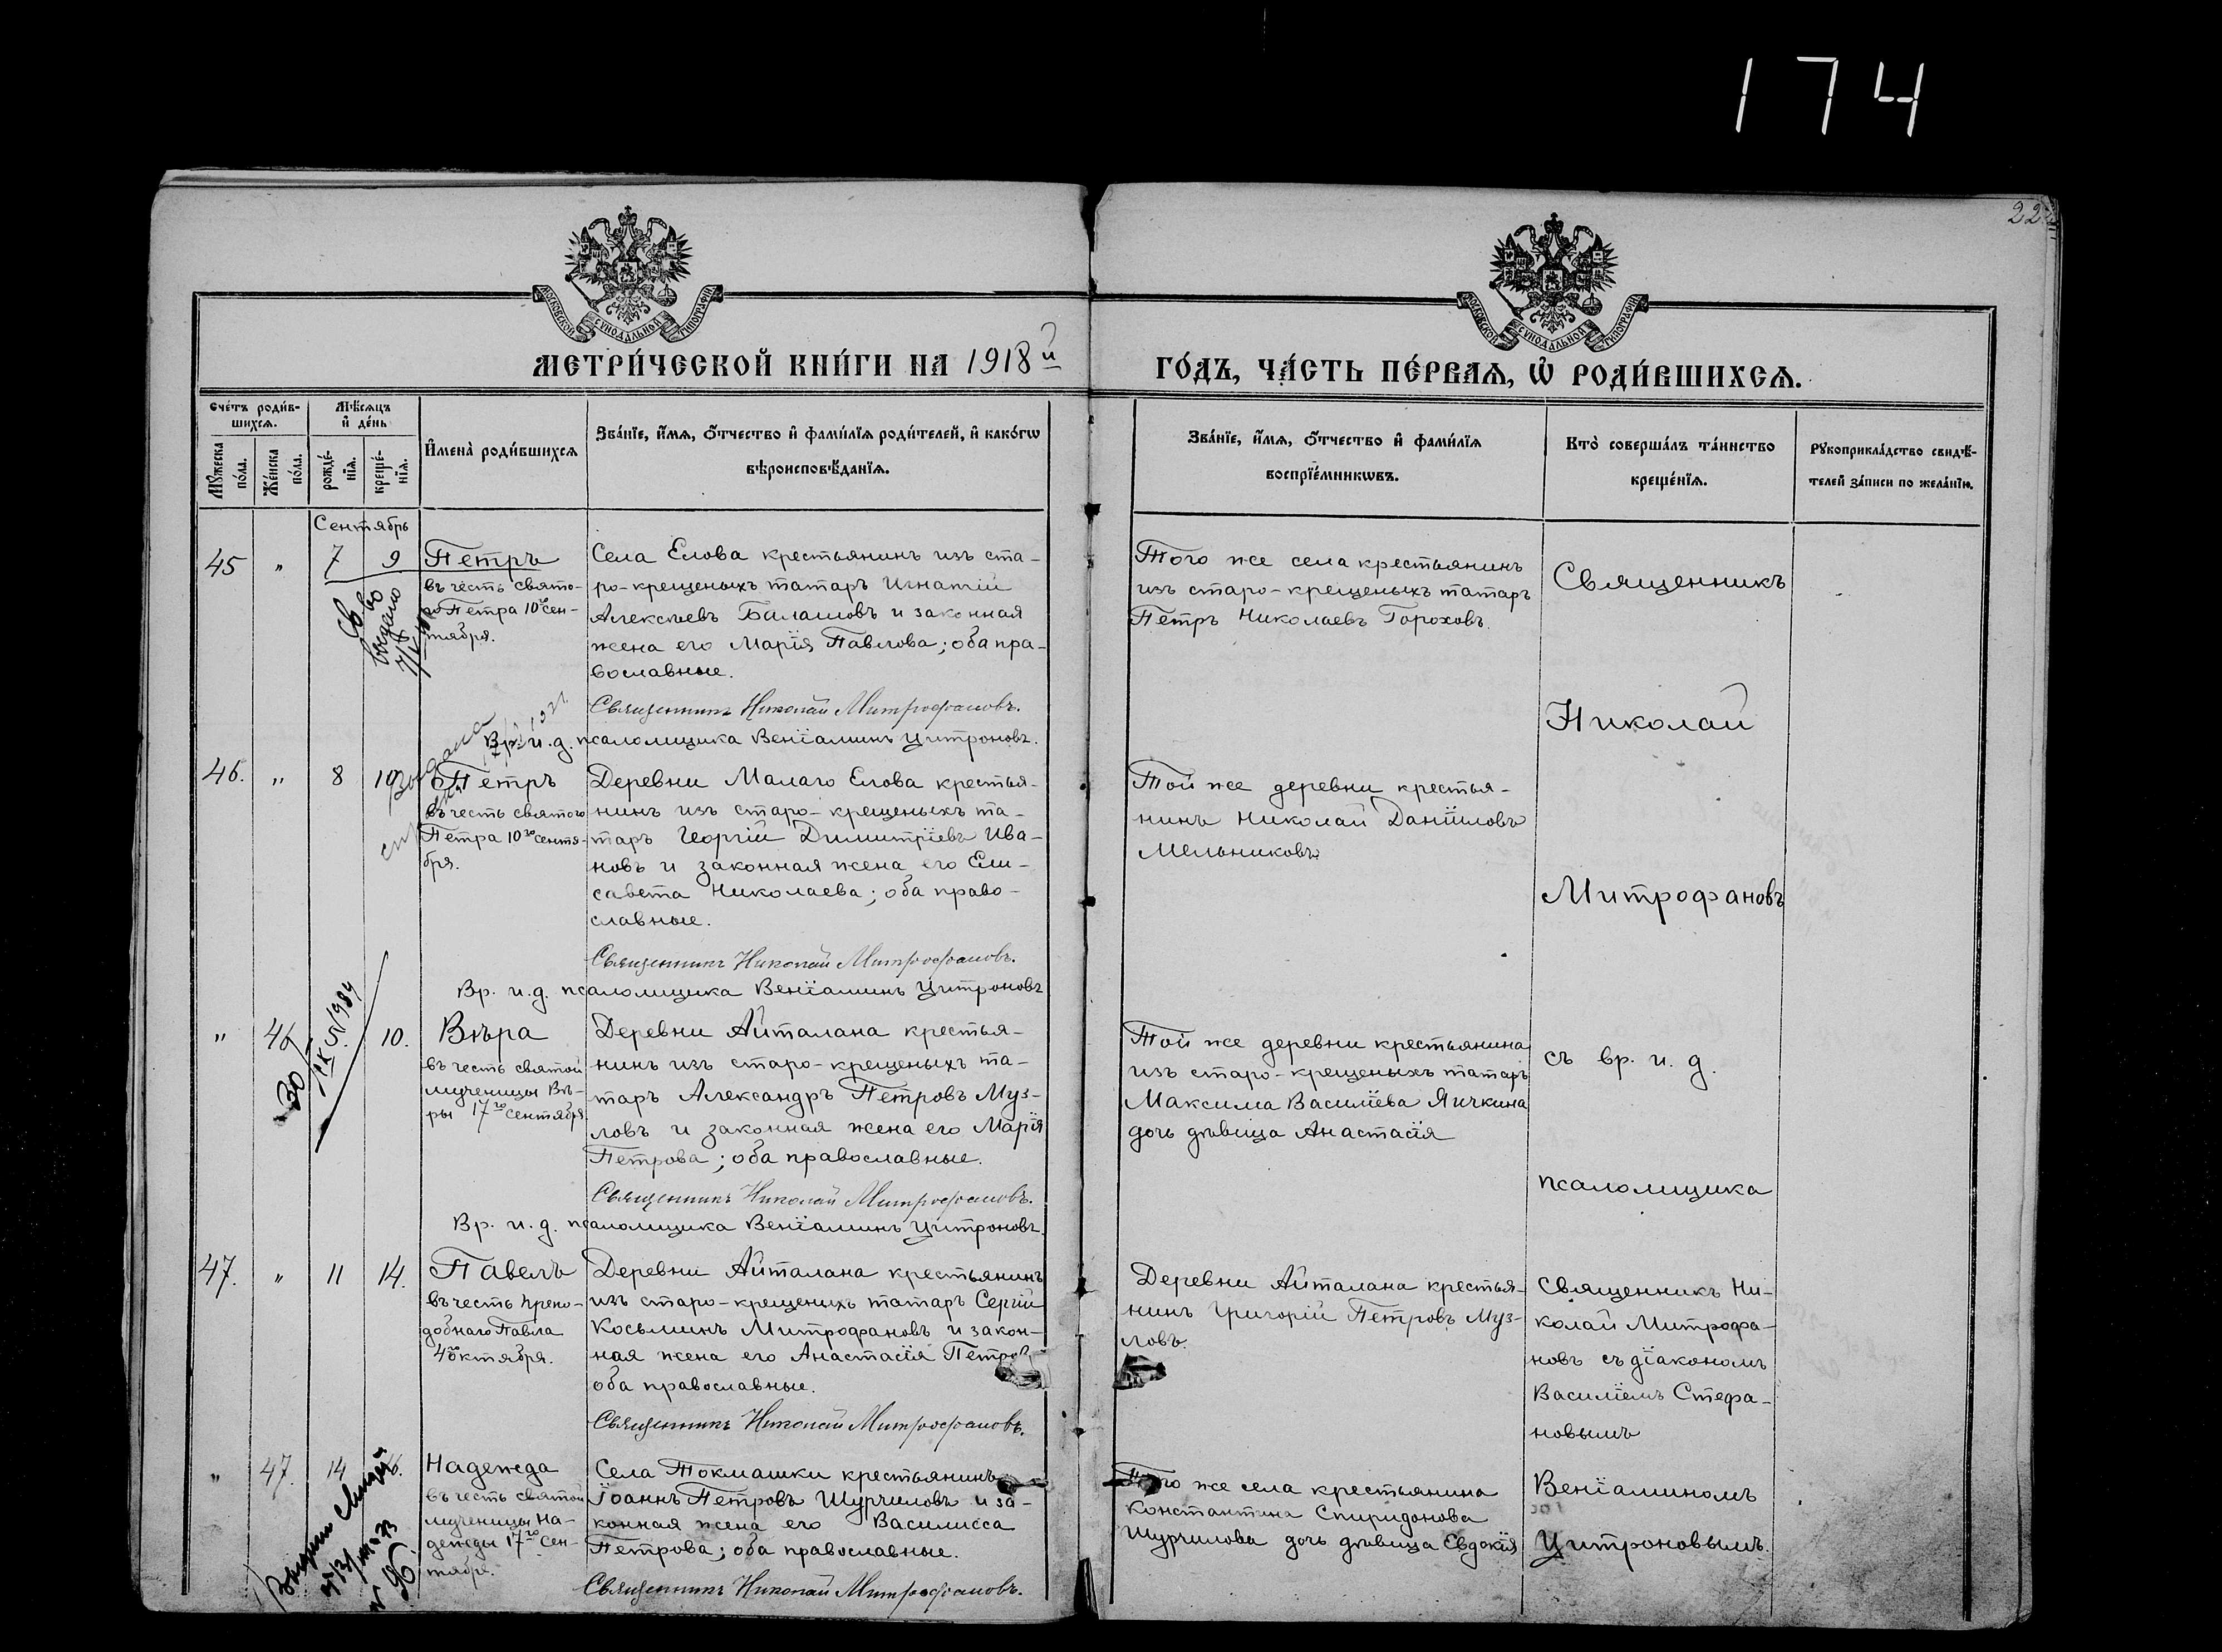 174
22
МОСКОВСКОЙ СѴНОДАЛЬНОЙ ТИПОГРАФІИ
МОСКОВСКОЙ СѴНОДАЛЬНОЙ ТИПОГРАФІИ
МЕТРИ́ЧЕСКОЙ КНИ́ГИ НА 1918й
ГО́ДЪ, ЧА́СТЬ ПЕ́РВАѦ, Ѡ҆ РОДИ́ВШИХСѦ.
Сче́тъ роди́в-
шихсѧ.
Мꙋ́жеска по́ла.
Же́нска по́ла.
Мѣ́сѧцъ и҆ де́нь
рожде́-
нїѧ.
креще́-
нїѧ.
И҆мена̀ роди́вшихсѧ
Зва́нїе, и҆́мѧ, ѻ҆́тчество и҆ фами́лїѧ роди́телей, и҆ како́гѡ
вѣроисповѣ́данїѧ.
Зва́нїе, и҆́мѧ, ѻ҆́тчество и҆ фами́лїѧ
воспрїе́мникѡвъ.
Кто̀ соверша́лъ та́инство
креще́нїѧ.
Рꙋкоприкла́дство свидѣ́-
телей за́писи по жела́нїю.
Сентябрь
45 " 7 9
Петръ
въ честь свято-
го Петра 10го сен-
тября.
Села Елова крестьянинъ изъ ста-
ро-крещеныхъ татаръ Игнатій
Алексѣевъ Балашовъ и законная
жена его Марія Павлова; оба пра-
вославные.
Священникъ Николай Митрофановъ.
Вр. и. д. псаломщика Веніаминъ Цитроновъ.
Того же села крестьянинъ
изъ старо-крещеныхъ татаръ
Петръ Николаевъ Гороховъ.
Священникъ
Николай
46. " 8 10
Петръ
въ честь святого
Петра 10го сентя-
бря.
Деревни Малаго Елова крестья-
нинъ изъ старо-крещеныхъ та-
таръ Георгій Димитріевъ Ива-
новъ и законная жена его Ели-
савета Николаева; оба право-
славные.
Священникъ Николай Митрофановъ.
Вр. и. д. псаломщика Веніаминъ Цитроновъ
Той же деревни крестья-
нинъ Николай Даніиловъ
Мельниковъ.
Митрофановъ
" 46 10.
Вѣра
въ честь святой
мученицы Вѣ-
ры 17го сентября.
Деревни Айталана крестья-
нинъ изъ старо-крещеныхъ та-
таръ Александръ Петровъ Муз-
ловъ и законная жена его Марія
Петрова; оба православные.
Священникъ Николай Митрофановъ.
Вр. и. д. псаломщика Веніаминъ Цитроновъ.
Той же деревни крестьянина
изъ старо-крещеныхъ татаръ
Максима Василіева Яичкина
дочь дѣвица Анастасія
съ вр. и. д.
псаломщика
47. " 11 14.
Павелъ
въ честь препо-
добнаго Павла
4го октября.
Деревни Айталана крестьянинъ
изъ старо-крещеныхъ татаръ Сергій
Косьминъ Митрофановъ и закон-
ная жена его Анастасія Петров
оба православные.
Священникъ Николай Митрофановъ.
Деревни Айталана крестья-
нинъ Григорій Петровъ Муз-
ловъ.
Священникъ Ни-
колай Митрофа-
новъ съ діакономъ
Василіемъ Стефа-
новымъ
" 47. 14
Надежда
въ честь святой
мученицы На-
дежды 17го сен-
тября.
Села Токмашки крестьянинъ
Іоаннъ Петровъ Шурчиловъ и за-
конная жена его Василисса
Петрова; оба православные.
Священникъ Николай Митрофановъ.
Того же села крестьянина
Константина Спиридонова
Шурчилова дочь дѣвица Евдокія
Веніаминомъ
Цитроновымъ.